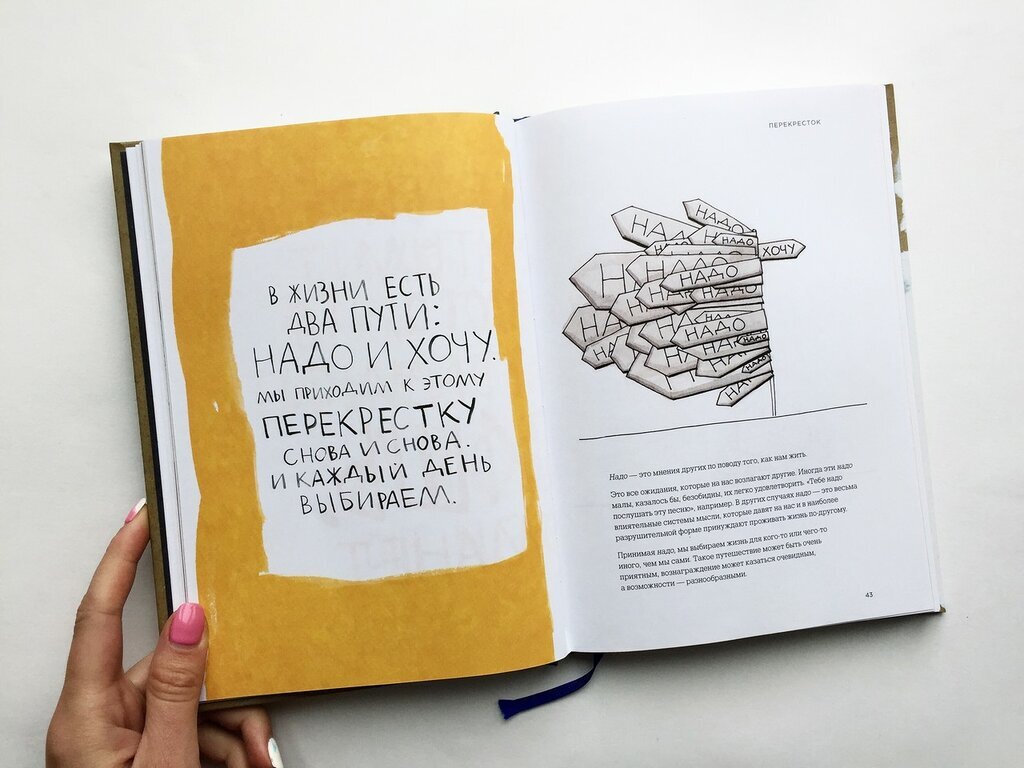 В ЖИЗНИ ЕСТЬ
ДВА ПУТИ:
НАДО И ХОЧУ.
МЫ ПРИХОДИМ К ЭТОМУ
ПЕРЕКРЕСТКУ
СНОВА И СНОВА.
И КАЖДЫЙ ДЕНЬ
ВЫБИРАЕМ.
ПЕРЕКРЕСТОК
НАДО
НАДО
НАДО
ХОЧУ
НАДО
НАДО
НАДО
НАДО
Надо — это мнения других по поводу того, как нам жить.
Это все ожидания, которые на нас возлагают другие. Иногда эти надо
малы, казалось бы, безобидны, их легко удовлетворить. «Тебе надо
послушать эту песню», например. В других случаях надо — это весьма
влиятельные системы мысли, которые давят на нас и в наиболее
разрушительной форме принуждают проживать жизнь по-другому.
Принимая надо, мы выбираем жизнь для кого-то или чего-то
иного, чем мы сами. Такое путешествие может быть очень
приятным, вознаграждение может казаться очевидным,
а возможности — разнообразными.
43